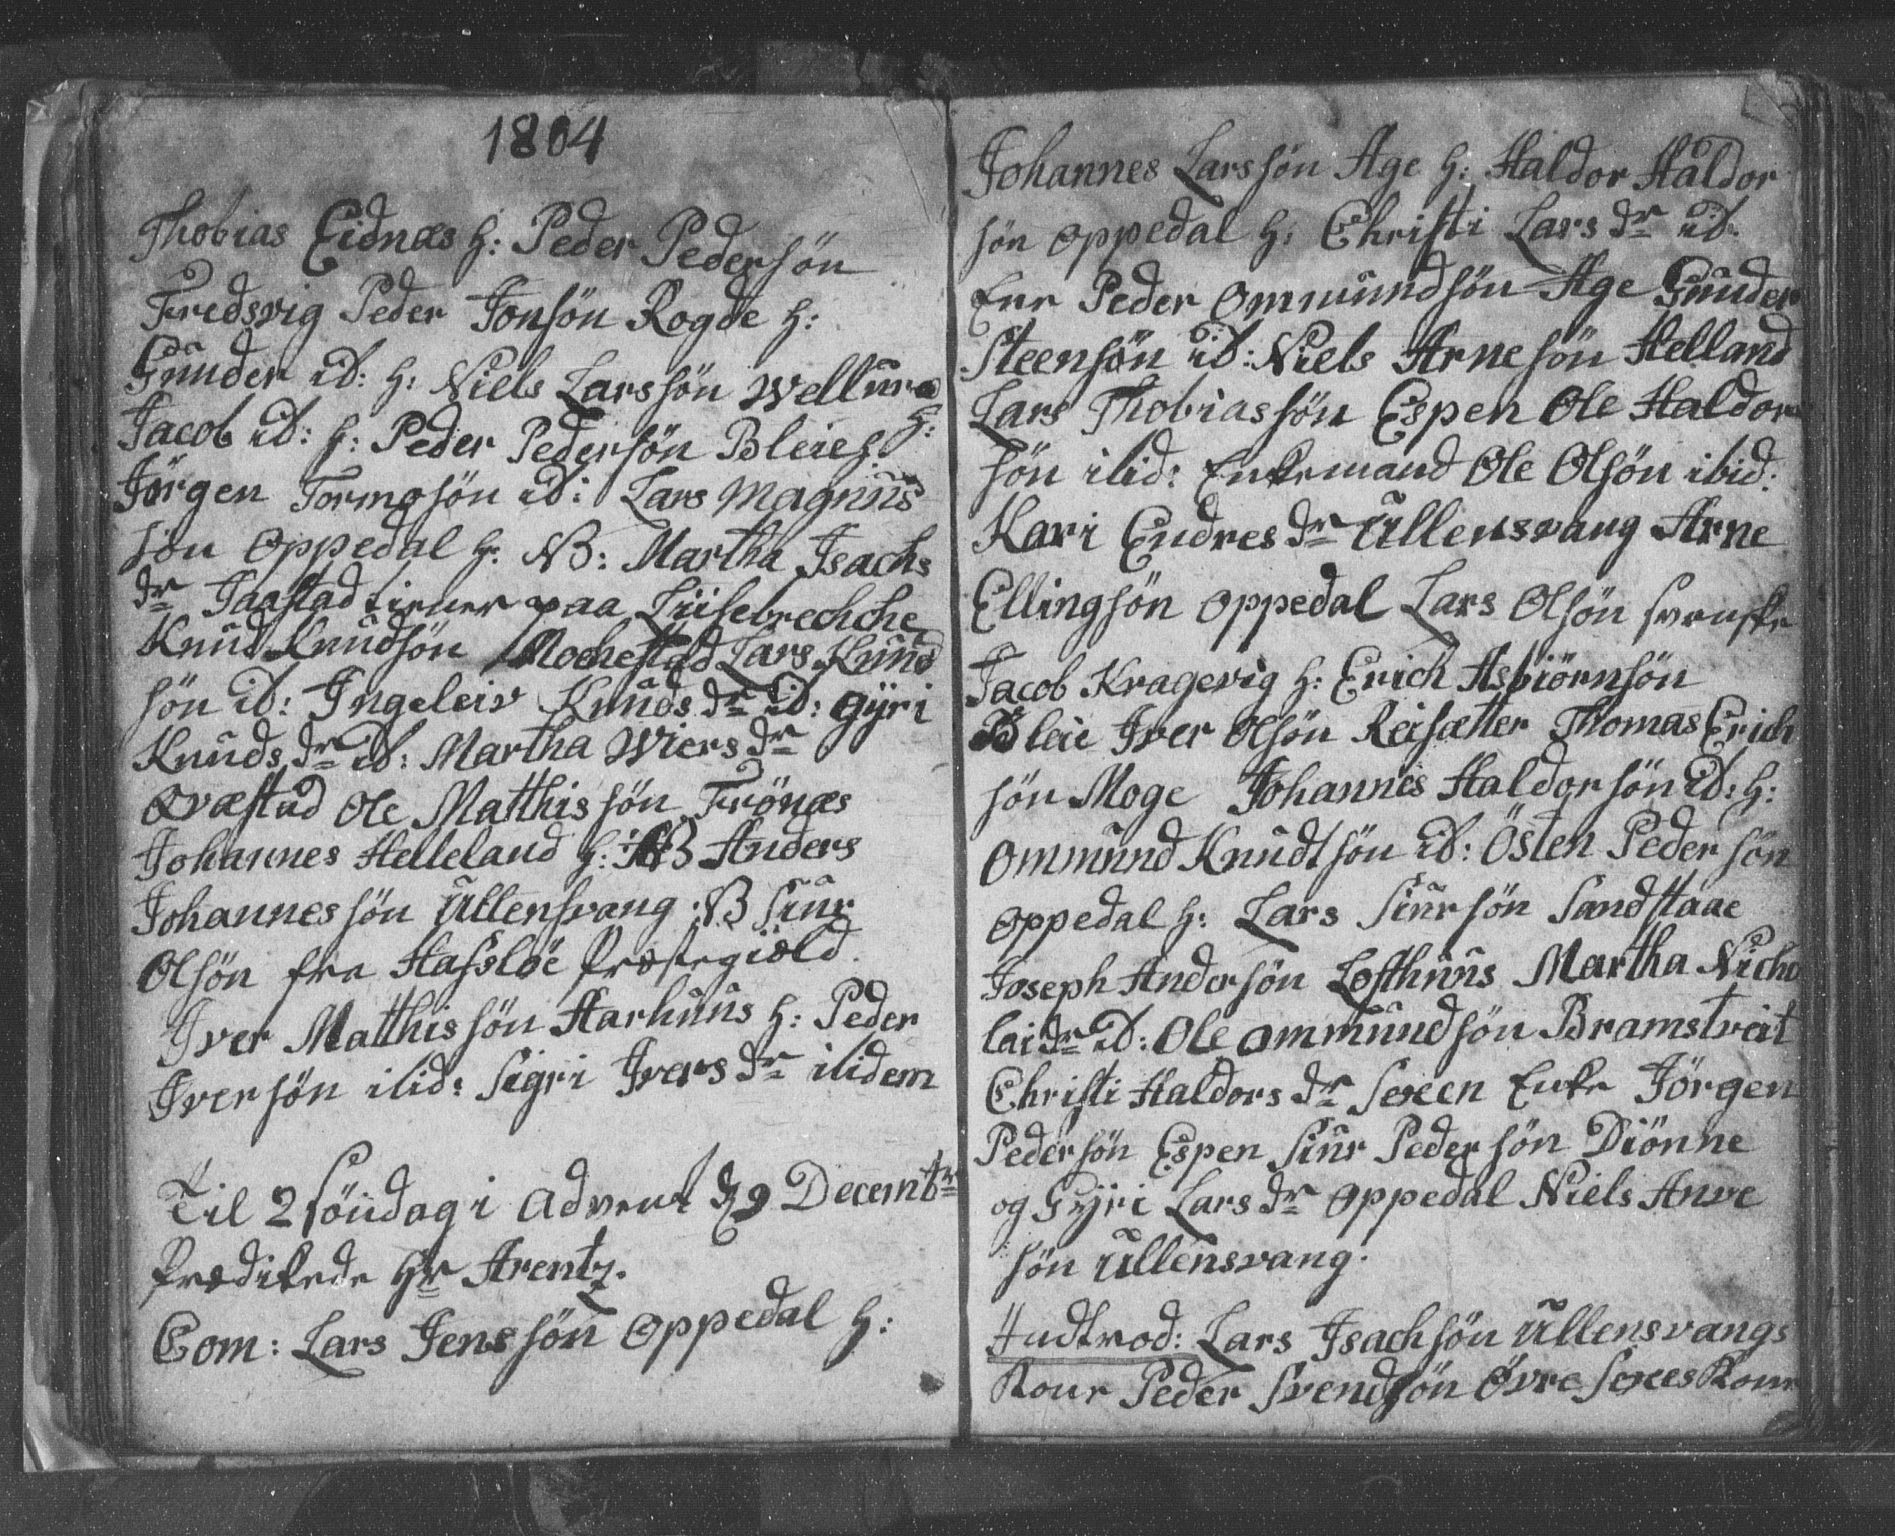 1804
Thobias Eidnæs h: Peder Pedersön
Fredsvig Peder Jonsön Rogde h:
Gunder id: h: Niels Larssön Wellure
Jacob id: h: Peder Pedersön Bleie h: h:
Jörgen Tormosön id: Lars Magnus
sön Oppedal h: NB: Martha Isachs
dr Jaastad tiener paa Liisebrechche
Knud Knudsön Mochestad Lars Knud
sön id: Ingeleiv Knuds dr id: Gÿri
Knuds dr id: Martha Wiers dr
Qvæstad Ole Matthissön Frönæs
Johannes Helleland h: NB Anders
Johannessön Ullensvang: NB Siur
Olsön fra Hafsloe Præstegiæld.
Iver Matthissön Aarhuus h: Peder
Iversön ibid: Sigri Ivers dr ibidem
Til 2 Söndag i Advent d 9 Decembr
Prædikede Hr Arentz.
Com: Lars Jenssön Oppedal h:
Johannes Larssön Age h: Haldor Haldor
sön Oppedal h: Christi Lars dr id:
Enr Peder Ommundsön Age Gunder
Steensön id: Niels Arnesön Helland
Lars Thobiassön Espen Ole Haldor
sön ibid: Enkemand Ole Olsön ibid:
Kari Endres dr Ullensvang Arne
Ellingsön Oppedal Lars Olsön svenske
Jacob Kragevig h: Erich Asbiörnsön
Bleie Iver Olsön Reisæter Thomas Erich
sön Moge Johannes Haldorsön id: h:
Ommund Knudtsön id: Östen Pedersön
Oppedal h: Lars Siursön Sandstaae
Joseph Andersön Lofthuus Martha Nicho
lai dr id: Ole Ommundsön Bramstveit
Christi Haldors dr Sexeen Enke Jörgen
Pedersön Espen Siur Pedersön Diönne
og Gÿri Lars dr Oppedal Niels Arne
sön Ullensvang.
Indtrod: Lars Isachsön Ullensvangs
Kone Peder Svendsön Övre Sexes Kone